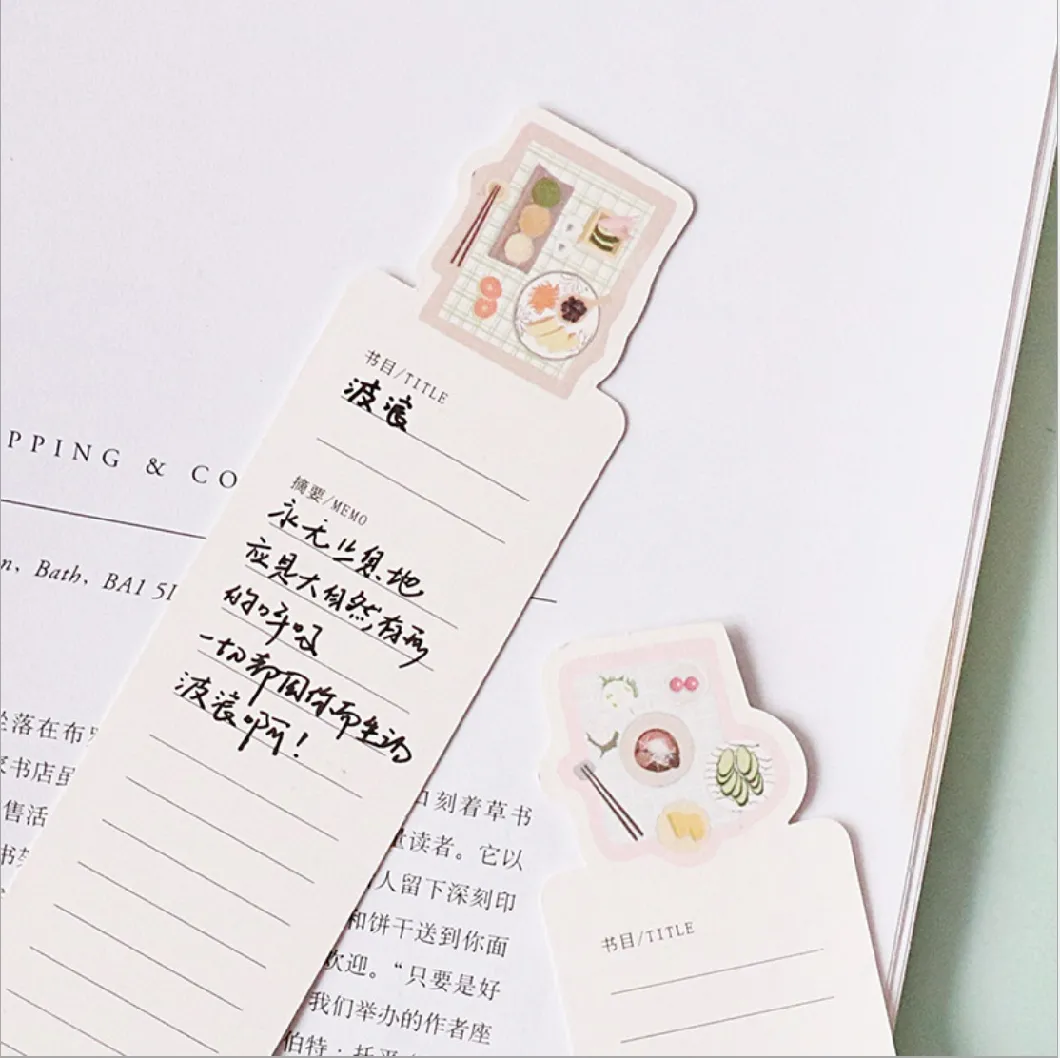 PPING & CO
n, Bath, BA1 5
书目/TITLE
波浪
摘要/MEMO
永无止息地
应是大自然有形
的呼吸
一切都因你而生动
波浪啊!
坐落在布
书店虽
售活
口刻着草书
读者。它以
人留下深刻印
和饼干送到你面
欢迎。“只要是好
我们举办的作者座
伯特·托平
书目/TITLE